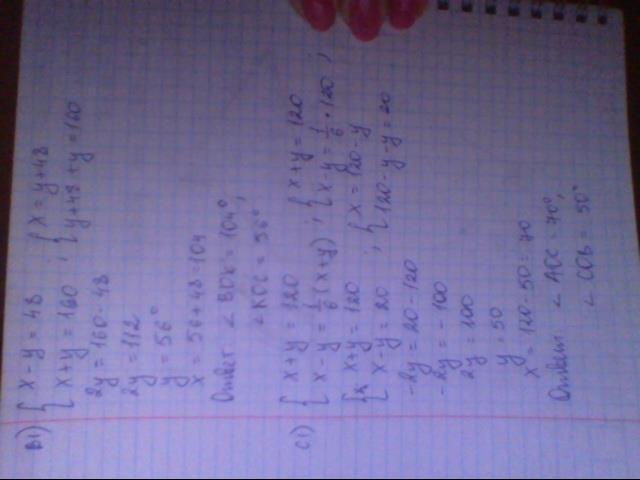 В1) { x - y = 48 ; { x = y+48
x + y = 160 { y+48+y=160
2y = 160-48
2y = 112
y = 56°
x = 56+48=104
Ответ ∠ BOK = 104°,
∠ KOC = 56°
С1) { x + y = 120 ; { x+y = 120
x - y = 1/6 (x+y) { x-y = 1/6 · 120 ;
{ x + y = 120 ; { x = 120-y
x - y = 20 { 120-y-y=20
-2y = 20-120
-2y = -100
2y = 100
y = 50
x = 120-50 = 70
Ответ ∠ AOC = 70°,
∠ COB = 50°